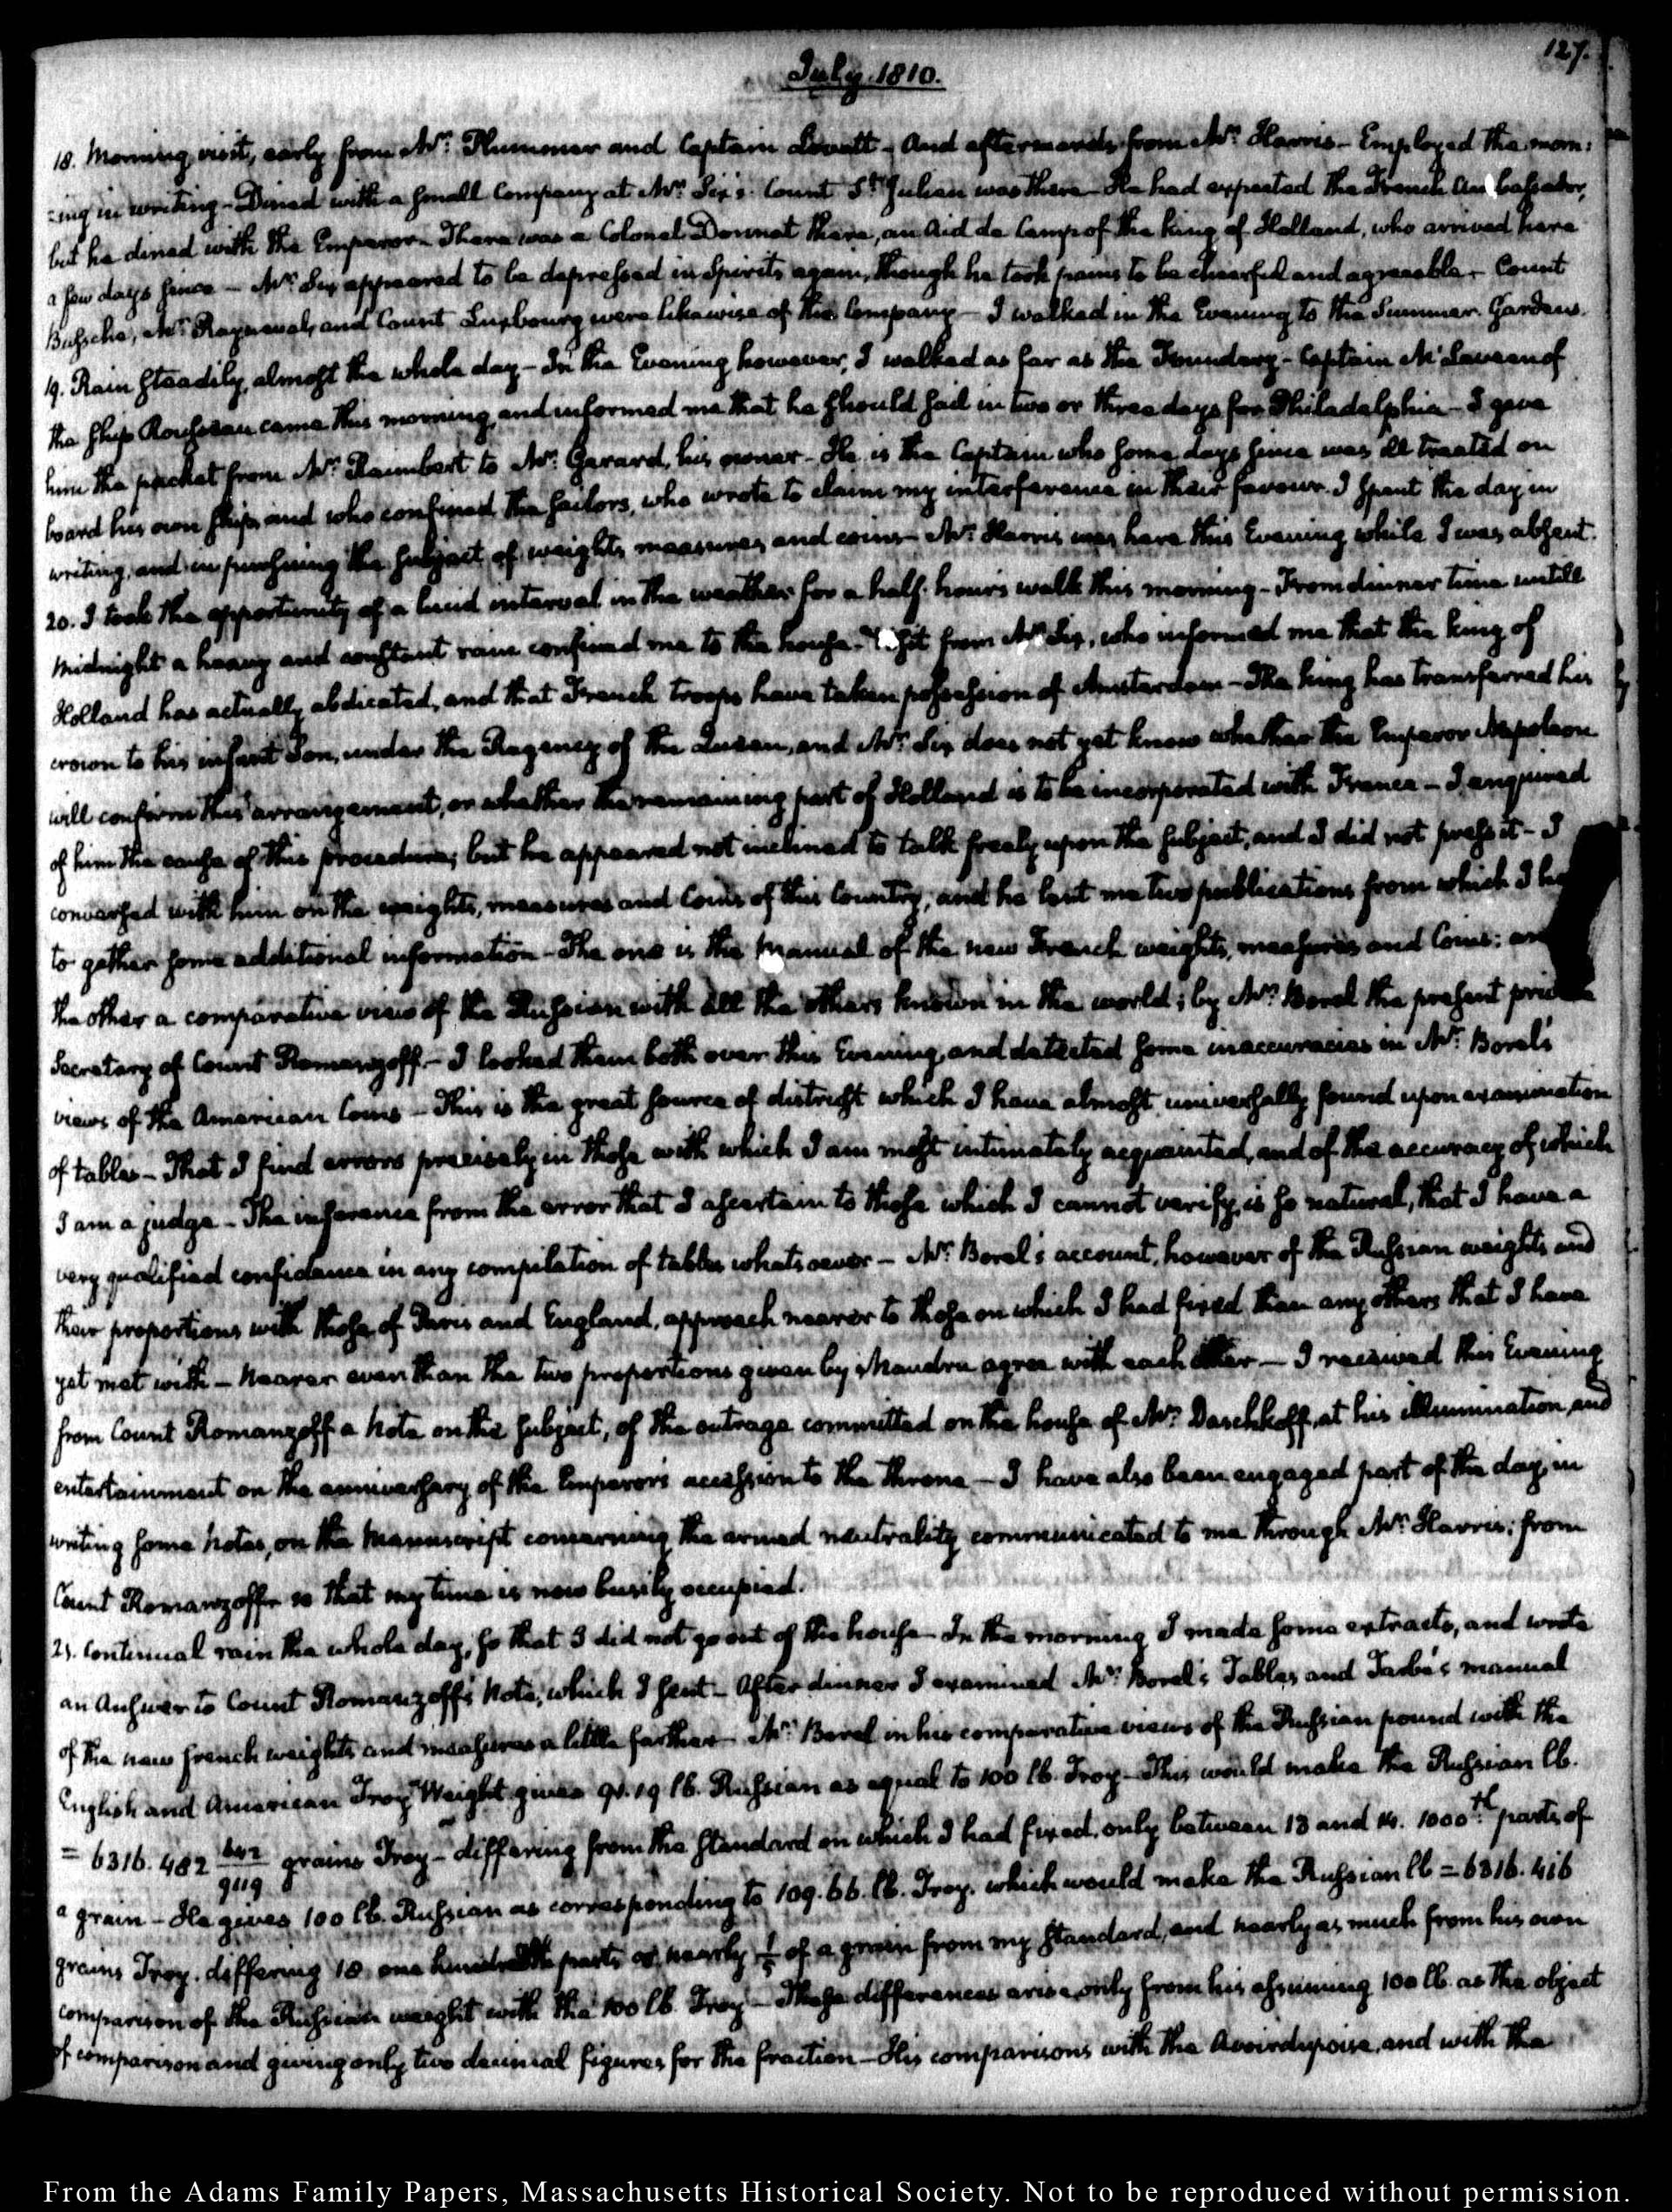 127.
July 1810.
18. Morning visit, early from Mr. Plummer and Captain Lovett - And afterwards from Mr. Harris - Employed the morn:
:ing in writing - Dined with a small Company at Mr. Six's. Count St. Julien was there - He had expected the French Ambassador,
but he dined with the Emperor - There was a Colonel Donnat there, an Aid de Camp of the king of Holland, who arrived here
a few days since - Mr. Six appeared to be depressed in Spirits again, though he took pains to be chearful and agreeable - Count
Bussche, Mr. Rayneval, and Count Luxbourg were likewise of the Company - I walked in the Evening to the Summer Gardens.
19. Rain steadily, almost the whole day - In the Evening however, I walked as far as the Foundery - Captain of
the ship Rousseau came this morning, and informed me that he should sail in two or three days for Philadelphia - I gave
him the packet from Mr. Raimbert to Mr. Gerard, his owner - He is the Captain who some days since was ill treated on
board his own ship, and who confined the sailors, who wrote to claim my interference in their favour. I spent the day in
writing, and in pursuing the subject of weights, measures, and coins - Mr. Harris was here this Evening while I was absent.
20. I took the opportunity of a lucid interval in the weather for a half-hour's walk this morning - From dinner time untill
midnight a heavy and constant rain confined me to the house. Visit from Mr. Six, who informed me that the king of
Holland has actually abdicated, and that French troops have taken possession of Amsterdam - The king has transferred his
crown to his infant Son, under the Regency of the Queen, and Mr. Six does not yet know whether the Emperor Napoleon
will confirm this arrangement, or whether the remaining part of Holland is to be incorporated with France - I enquired
of him the cause of this procedure; but he appeared not inclined to talk freely upon the subject, and I did not press it - I
conversed with him on the weights, measures and Coins of this Country, and he lent me two publications from which I ho
to gather some additional information - The one is the Manual of the new French weights, measures and Coins: an
the other a comparative view of the Russian with all the others known in the world; by Mr. Borel the present
Secretary of Count Romanzoff. - I looked them both over this Evening, and detected some inaccuracies in Mr. Borel's
views of the American Coins - This is the great source of distrust which I have almost universally found upon examination
of tables - That I find errors precisely in those with which I am most intimately acquainted, and of the accuracy of which
I am a judge - The inference from the error that I ascertain to those which I cannot verify, is so natural, that I have a
very qualified confidence in any compilation of tables whatsoever - Mr. Borel's account, however of the Russian weights and
their proportions with those of Paris and England, approach nearer to those on which I had fixed than any others that I have
yet met with - Nearer even than the two proportions given by Mandru agree with each other - I received this Evening
from Count Romanzoff a Note on the subject, of the outrage committed on the house of Mr. Daschkoff, at his illumination, and
entertainment on the anniversary of the Emperor's accession to the throne - I have also been engaged part of the day, in
writing some Notes, on the Manuscript concerning the armed neutrality communicated to me through Mr. Harris; from
Count Romanzoff - so that my time is now busily occupied.
21. Continual rain the whole day, so that I did not go out of the house - In the morning I made some extracts, and wrote
an Answer to Count Romanzoff's Note, which I sent - After dinner I examined Mr. Borel's Tables, and Tarbé's manual
of the new french weights and measures a little further - Mr. Borel in his comparative views of the Russian pound with the
English and American Troy Weight gives 91.19 lb. Russian as equal to 100 lb. Troy - This would make the Russian lb.
= 6316.482 642/9119 grains Troy - differing from the standard on which I had fixed, only between 13 and 14. 1000th. parts of
a grain - He gives 100 lb. Russian as corresponding to 109.66. lb. Troy. which would make the Russian lb = 6316.416
grains Troy. differing 18 one hundredth parts or nearly 1/5 of a grain from my standard, and nearly as much from his own
comparison of the Russian weight with the 100 lb. Troy - These differences arise only from his assuming 100 lb. as the object
of comparison and giving only two decimal figures for the fraction - His comparisons with the Avoirdupoise, and with the
From the Adams Family Papers, Massachusetts Historical Society. Not to be reproduced without permission.